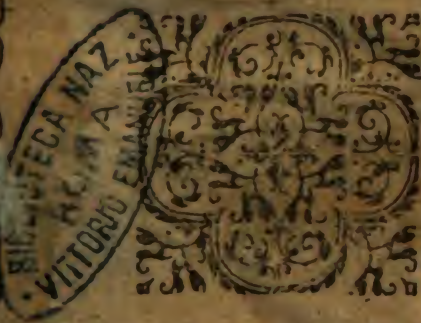 BIBLIOTECA NAZ.
ROMA
VITTORIO EMANUELE